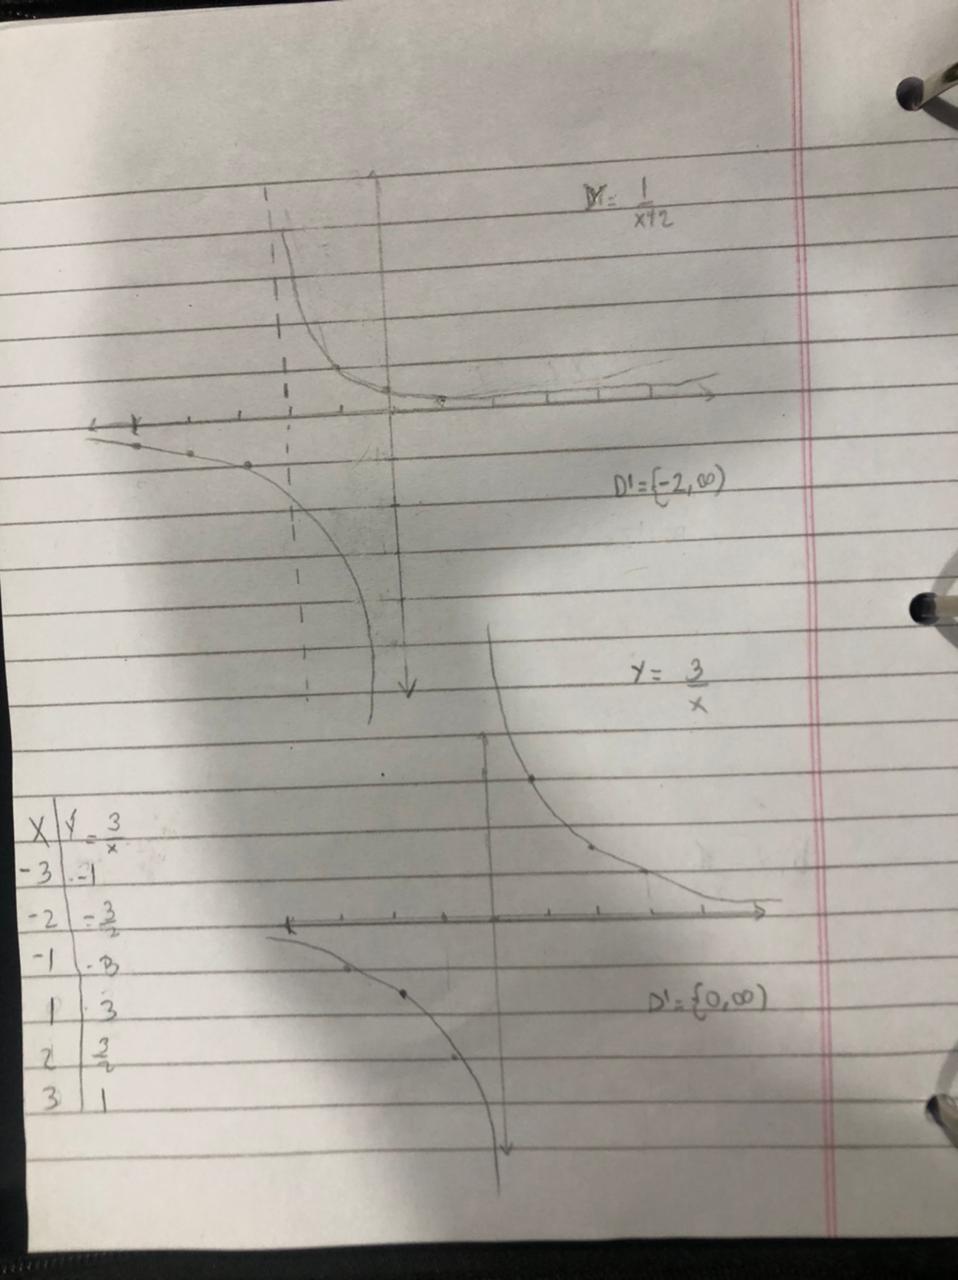 Y = 1/x+2
D' = {-2, ∞)
Y = 3/x
X | Y = 3/x
-3 | -1
-2 | -3/2
-1 | -3
1 | 3
2 | 3/2
3 | 1
D' = {0, ∞)